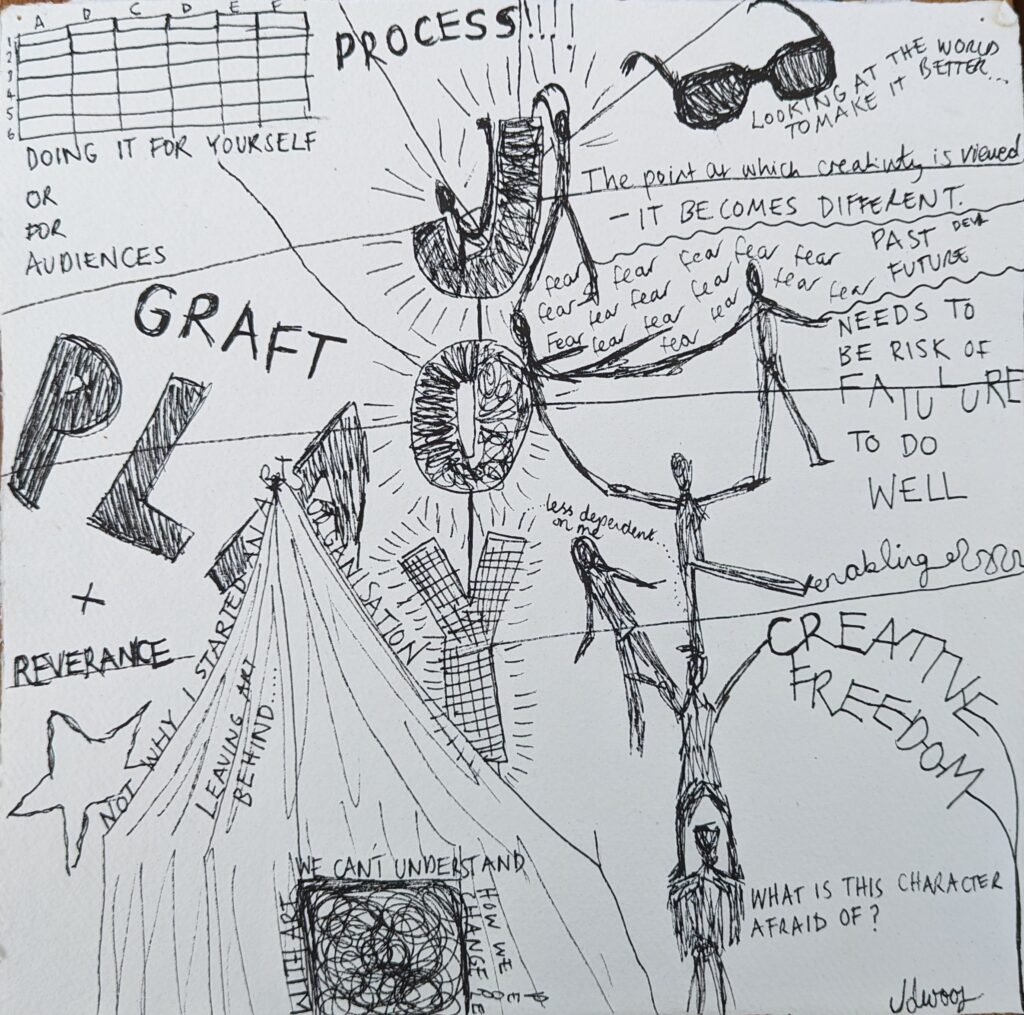 A D C D E F
1
2
3
4
5
6
PROCESS!!!!
LOOKING AT THE WORLD
TO MAKE IT BETTER...
DOING IT FOR YOURSELF
OR
FOR
AUDIENCES
The point at which creativity is viewed
- IT BECOMES DIFFERENT.
JOY
fear fear fear fear fear
fear fear fear fear fear fear
Fear fear fear fear fear
PAST
FUTURE
NEEDS TO
BE RISK OF
FAILURE
TO DO
WELL
GRAFT
PLAY
+
REVERANCE
NOT WHY I STARTED AN ART ORGANISATION
LEAVING ART
BEHIND....
less dependent
on me
enabling
CREATIVE
FREEDOM
WE CAN'T UNDERSTAND
HW WE
CHANGE
WITH ART
WHAT IS THIS CHARACTER
AFRAID OF?